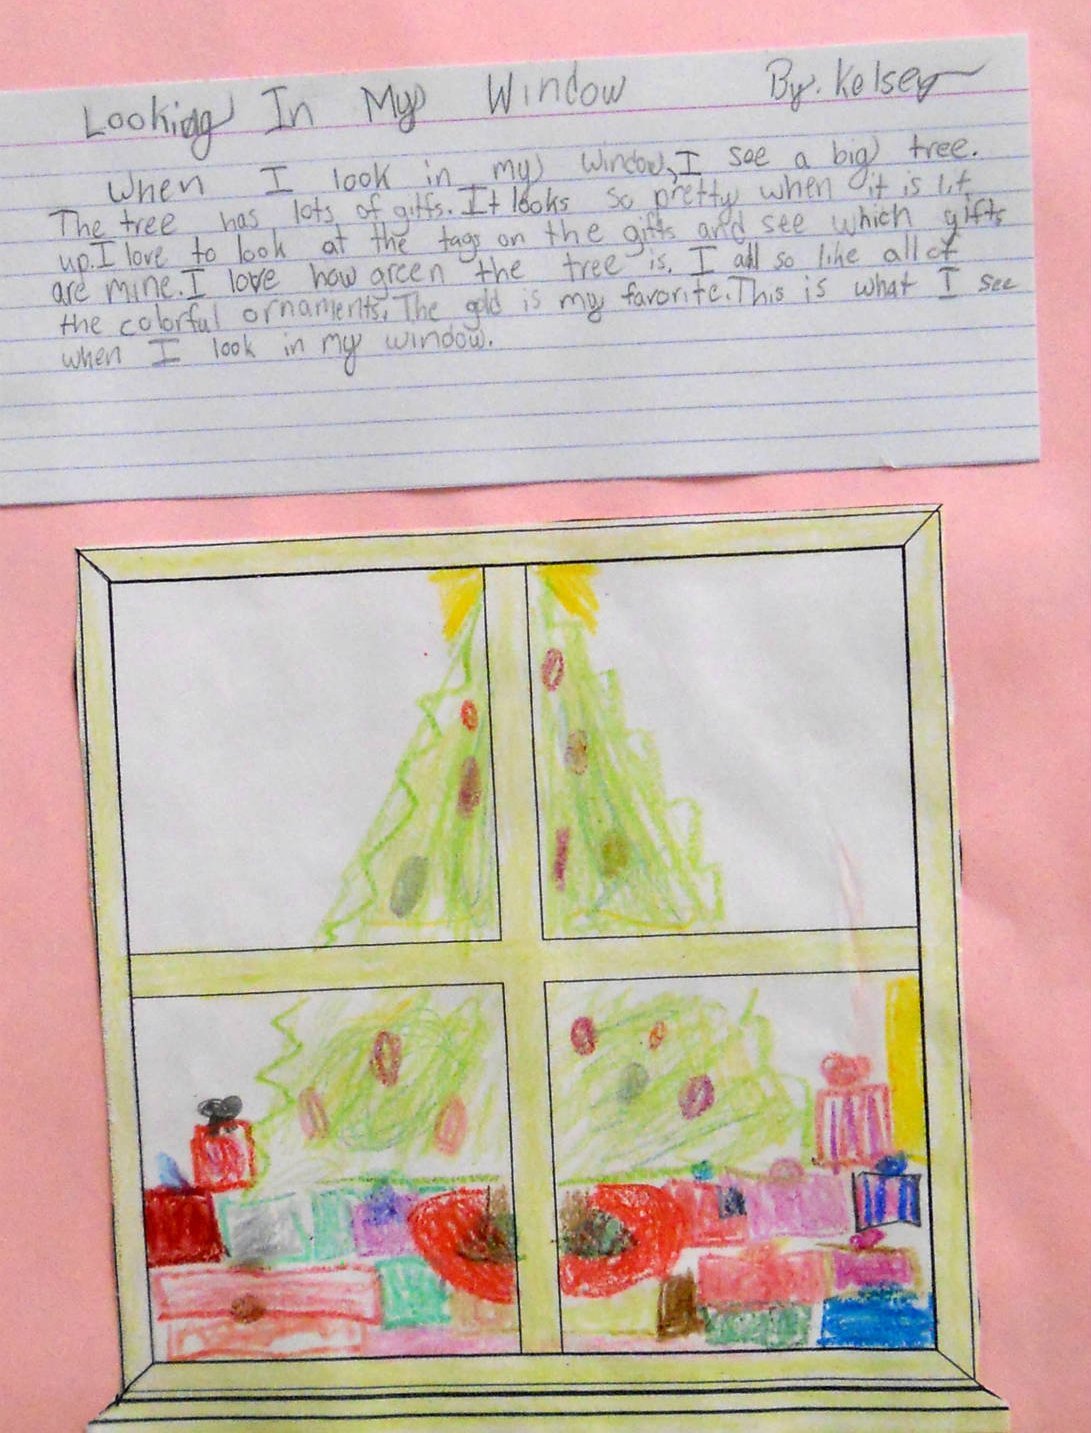 Looking In My Window By. Kelsey
When I look in my window, I see a big tree.
The tree has lots of gifts. It looks so pretty when it is lit
up. I love to look at the tags on the gifts and see which gifts
are mine. I love how green the tree is. I all so like all of
the colorful ornaments. The gold is my favorite. This is what I see
when I look in my window.